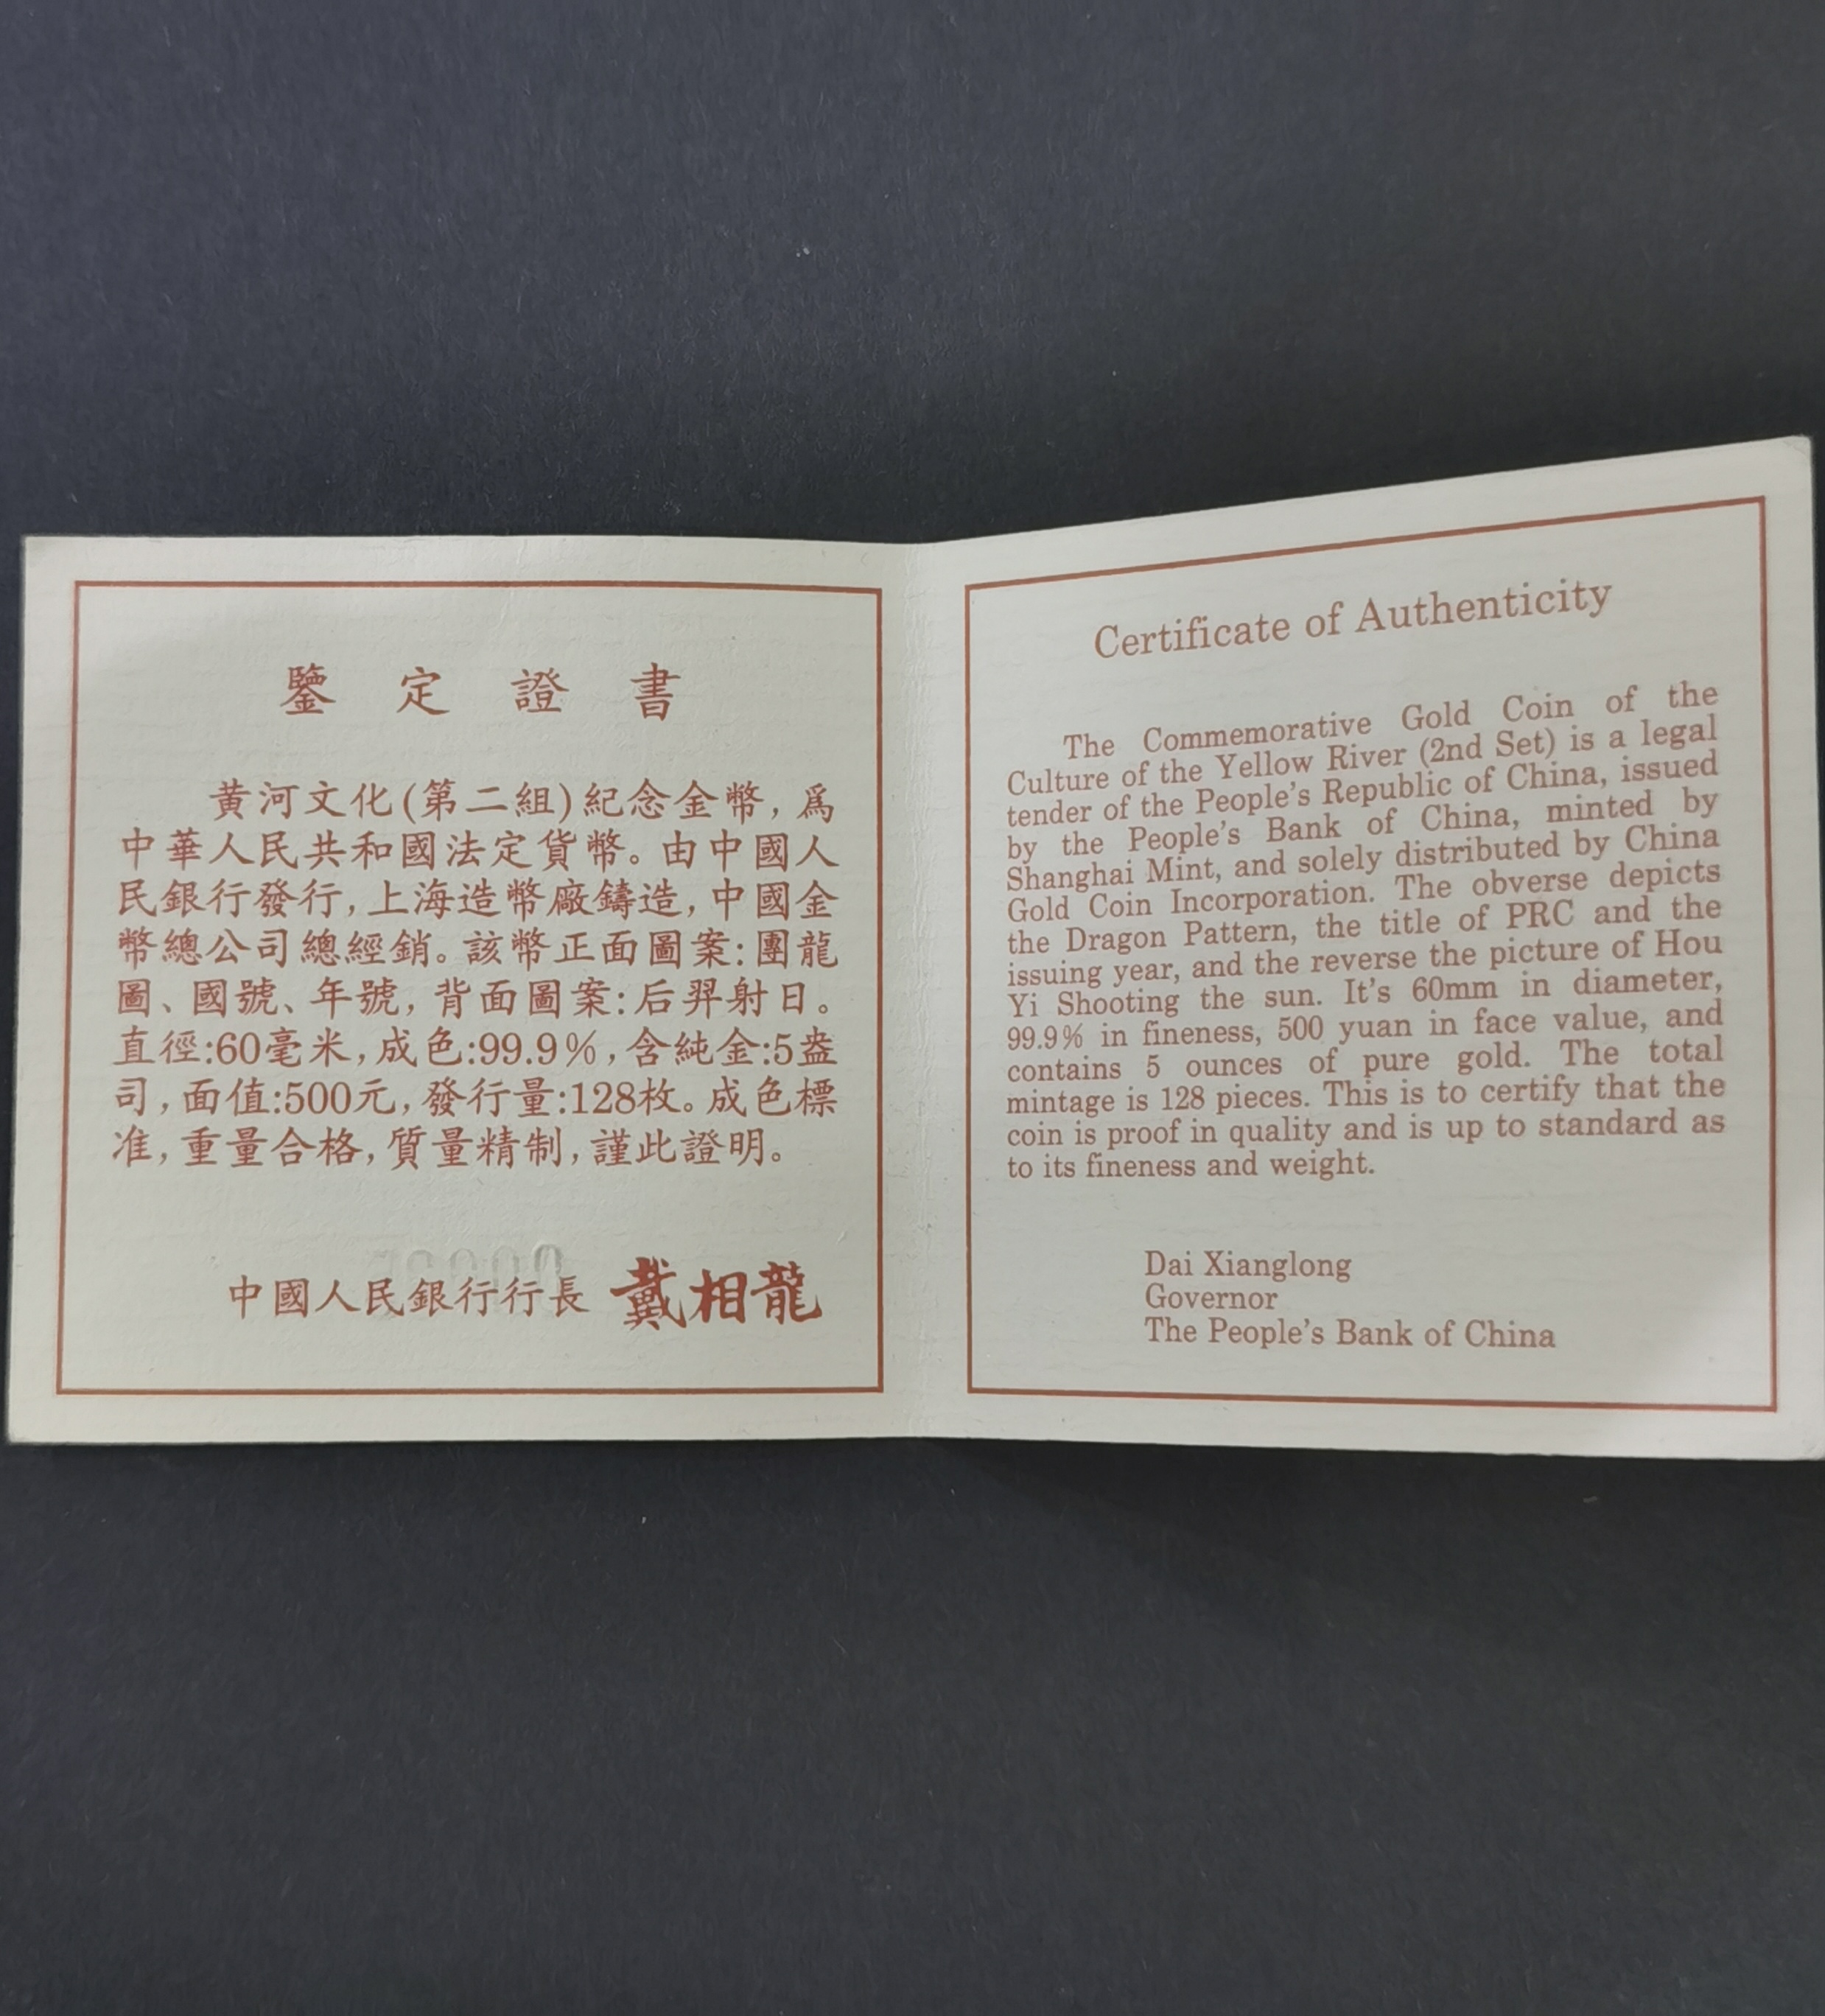 鑒定證書
黃河文化(第二組)紀念金幣,爲
中華人民共和國法定貨幣。由中國人
民銀行發行,上海造幣廠鑄造,中國金
幣總公司總經銷。該幣正面圖案:團龍
圖、國號、年號,背面圖案:后羿射日。
直徑:60毫米,成色:99.9%,含純金:5盎
司,面值:500元,發行量:128枚。成色標
准,重量合格,質量精制,謹此證明。
中國人民銀行行長 戴相龍
Certificate of Authenticity
The Commemorative Gold Coin of the
Culture of the Yellow River (2nd Set) is a legal
tender of the People's Republic of China, issued
by the People's Bank of China, minted by
Shanghai Mint, and solely distributed by China
Gold Coin Incorporation. The obverse depicts
the Dragon Pattern, the title of PRC and the
issuing year, and the reverse the picture of Hou
Yi Shooting the sun. It's 60mm in diameter,
99.9% in fineness, 500 yuan in face value, and
contains 5 ounces of pure gold. The total
mintage is 128 pieces. This is to certify that the
coin is proof in quality and is up to standard as
to its fineness and weight.
Dai Xianglong
Governor
The People's Bank of China